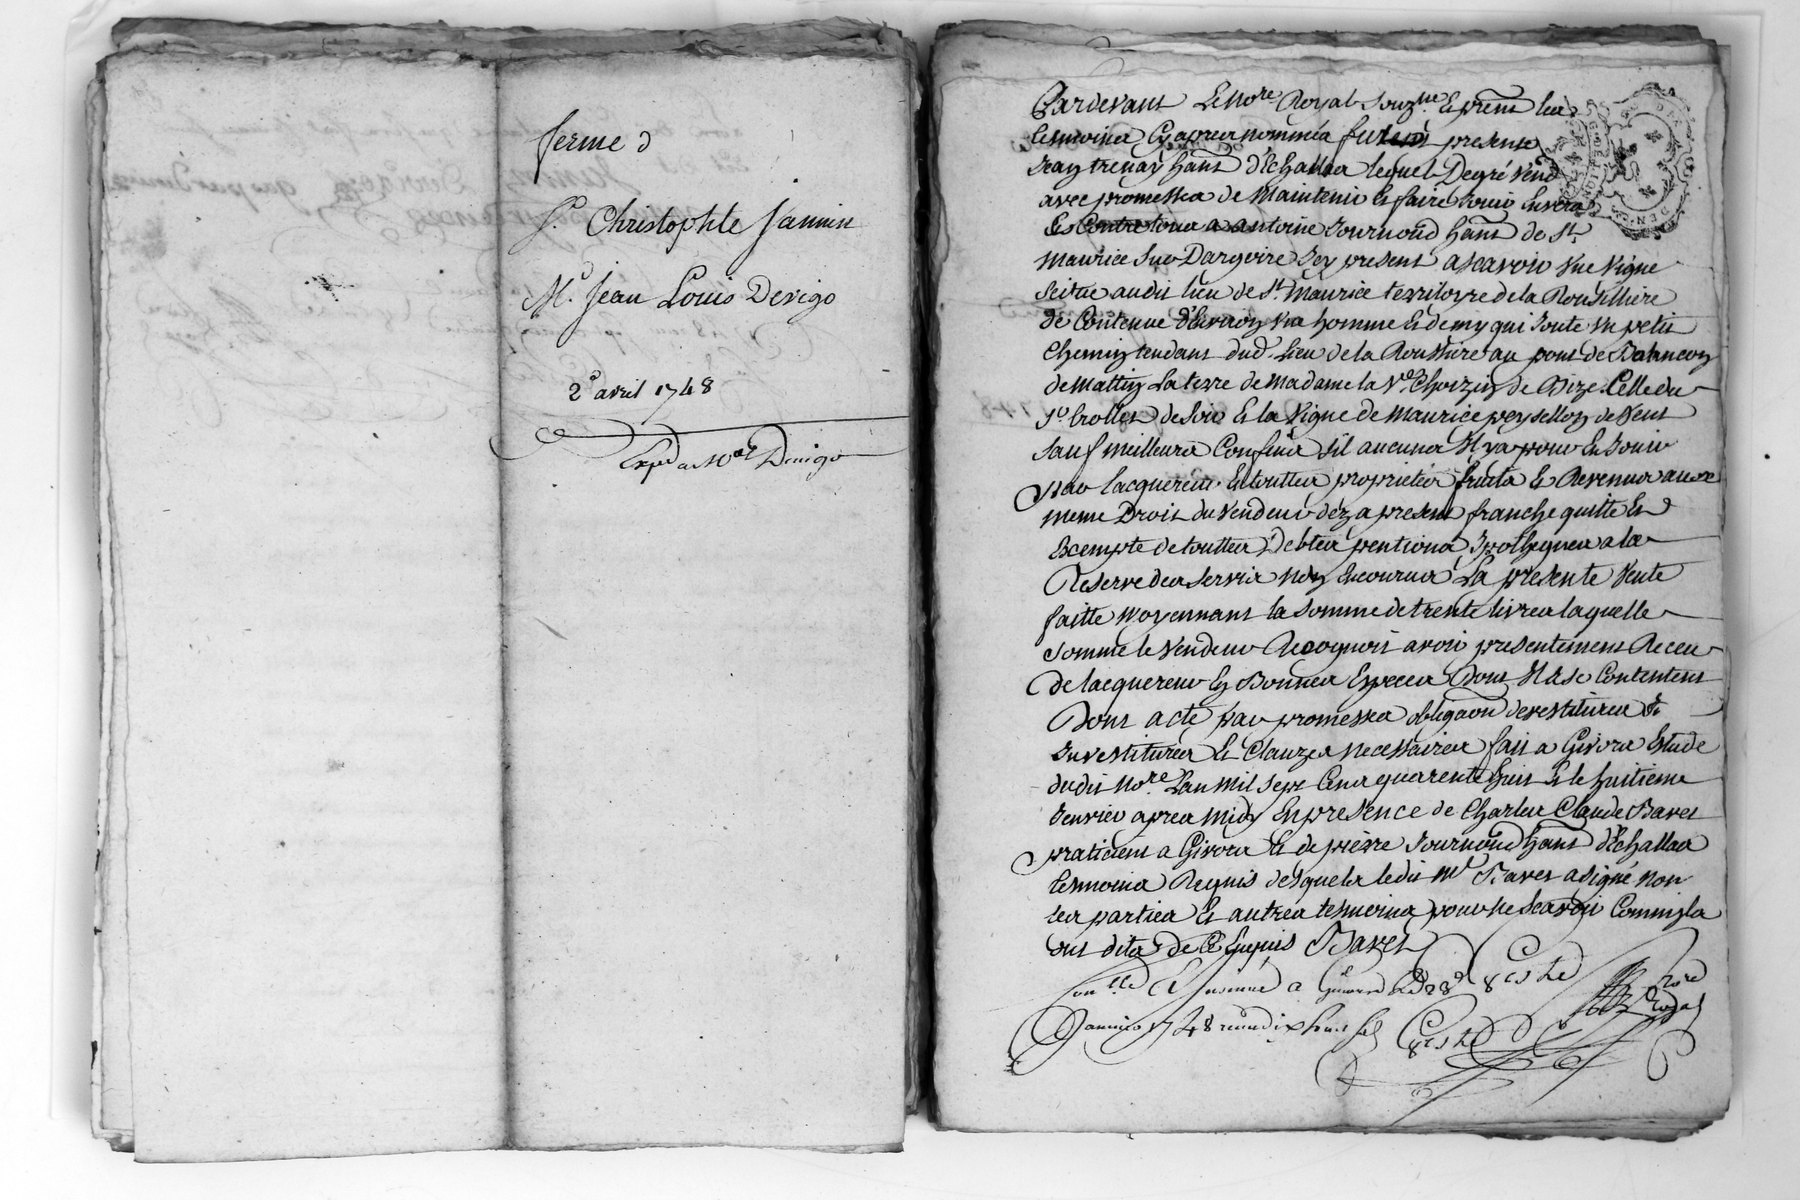 ferme
Sr. Christophle Jannin
Mr. Jean Louis Devigo
2e avril 1748
Exped
Pardevant Le Nore Royal Souzne. Et présent les
tesmoins Cy apres nommés furent presents
Jean trenay hant d'Echallas lequel Degré Vend
avec promesses de Maintenir Et faire Jouir Envers
Et Contre tous a antoine Journoud hant de St.
Maurice sur Dargoire Icy present ascavoir Une Vigne
scitue audit lieu de St. Maurice territoyre de la Rousilliere
de Contenue d'Environ Un homme Et demy qui Joute Un petit
Chemin tendant dud. lieu de la Rousliere au pont de
de Mattin La terre de Madame la Vve. de Celle du
Sr. de soir Et la Vigne de Maurice peysellon de Vent
sauf meilleurs Confins sil aucuns Il y a pour En Jouir
par lacquereur En touttes proprietés fruits Et Revenus au
meme Droit du Vendeur déz a present franche quitte Et
Exempte de touttes Debtes pentions Ipotheques a la
Reserve des servis non Encourus La presente Vente
faitte moyennant la somme de trente livres laquelle
somme le Vendeur Recognoit avoir presentement Receu
de lacquereur En Bonnes Especes Dont Il se Contentent
Dont acte par promesses obligaon devestitures Et
Investitures Et Clauzes necessaires fait a Givors Estude
dudit Nore. L'an Mil sept Cens quarente huit Et le huitieme
Janvier apres midy En presence de Charles Claude Bavet
praticient a Givors Et de pierre Journoud hant d'Echallas
tesmoins Requis desquels ledit Mr Bavet a signé non
les parties Et autres tesmoins pour ne scavoir Comm Ils
ont dit de Ce Enquis Bavet
Conllé Et Insinué a Givors Le
Janvier 1748 receu dix huit sols
Nore
Royal